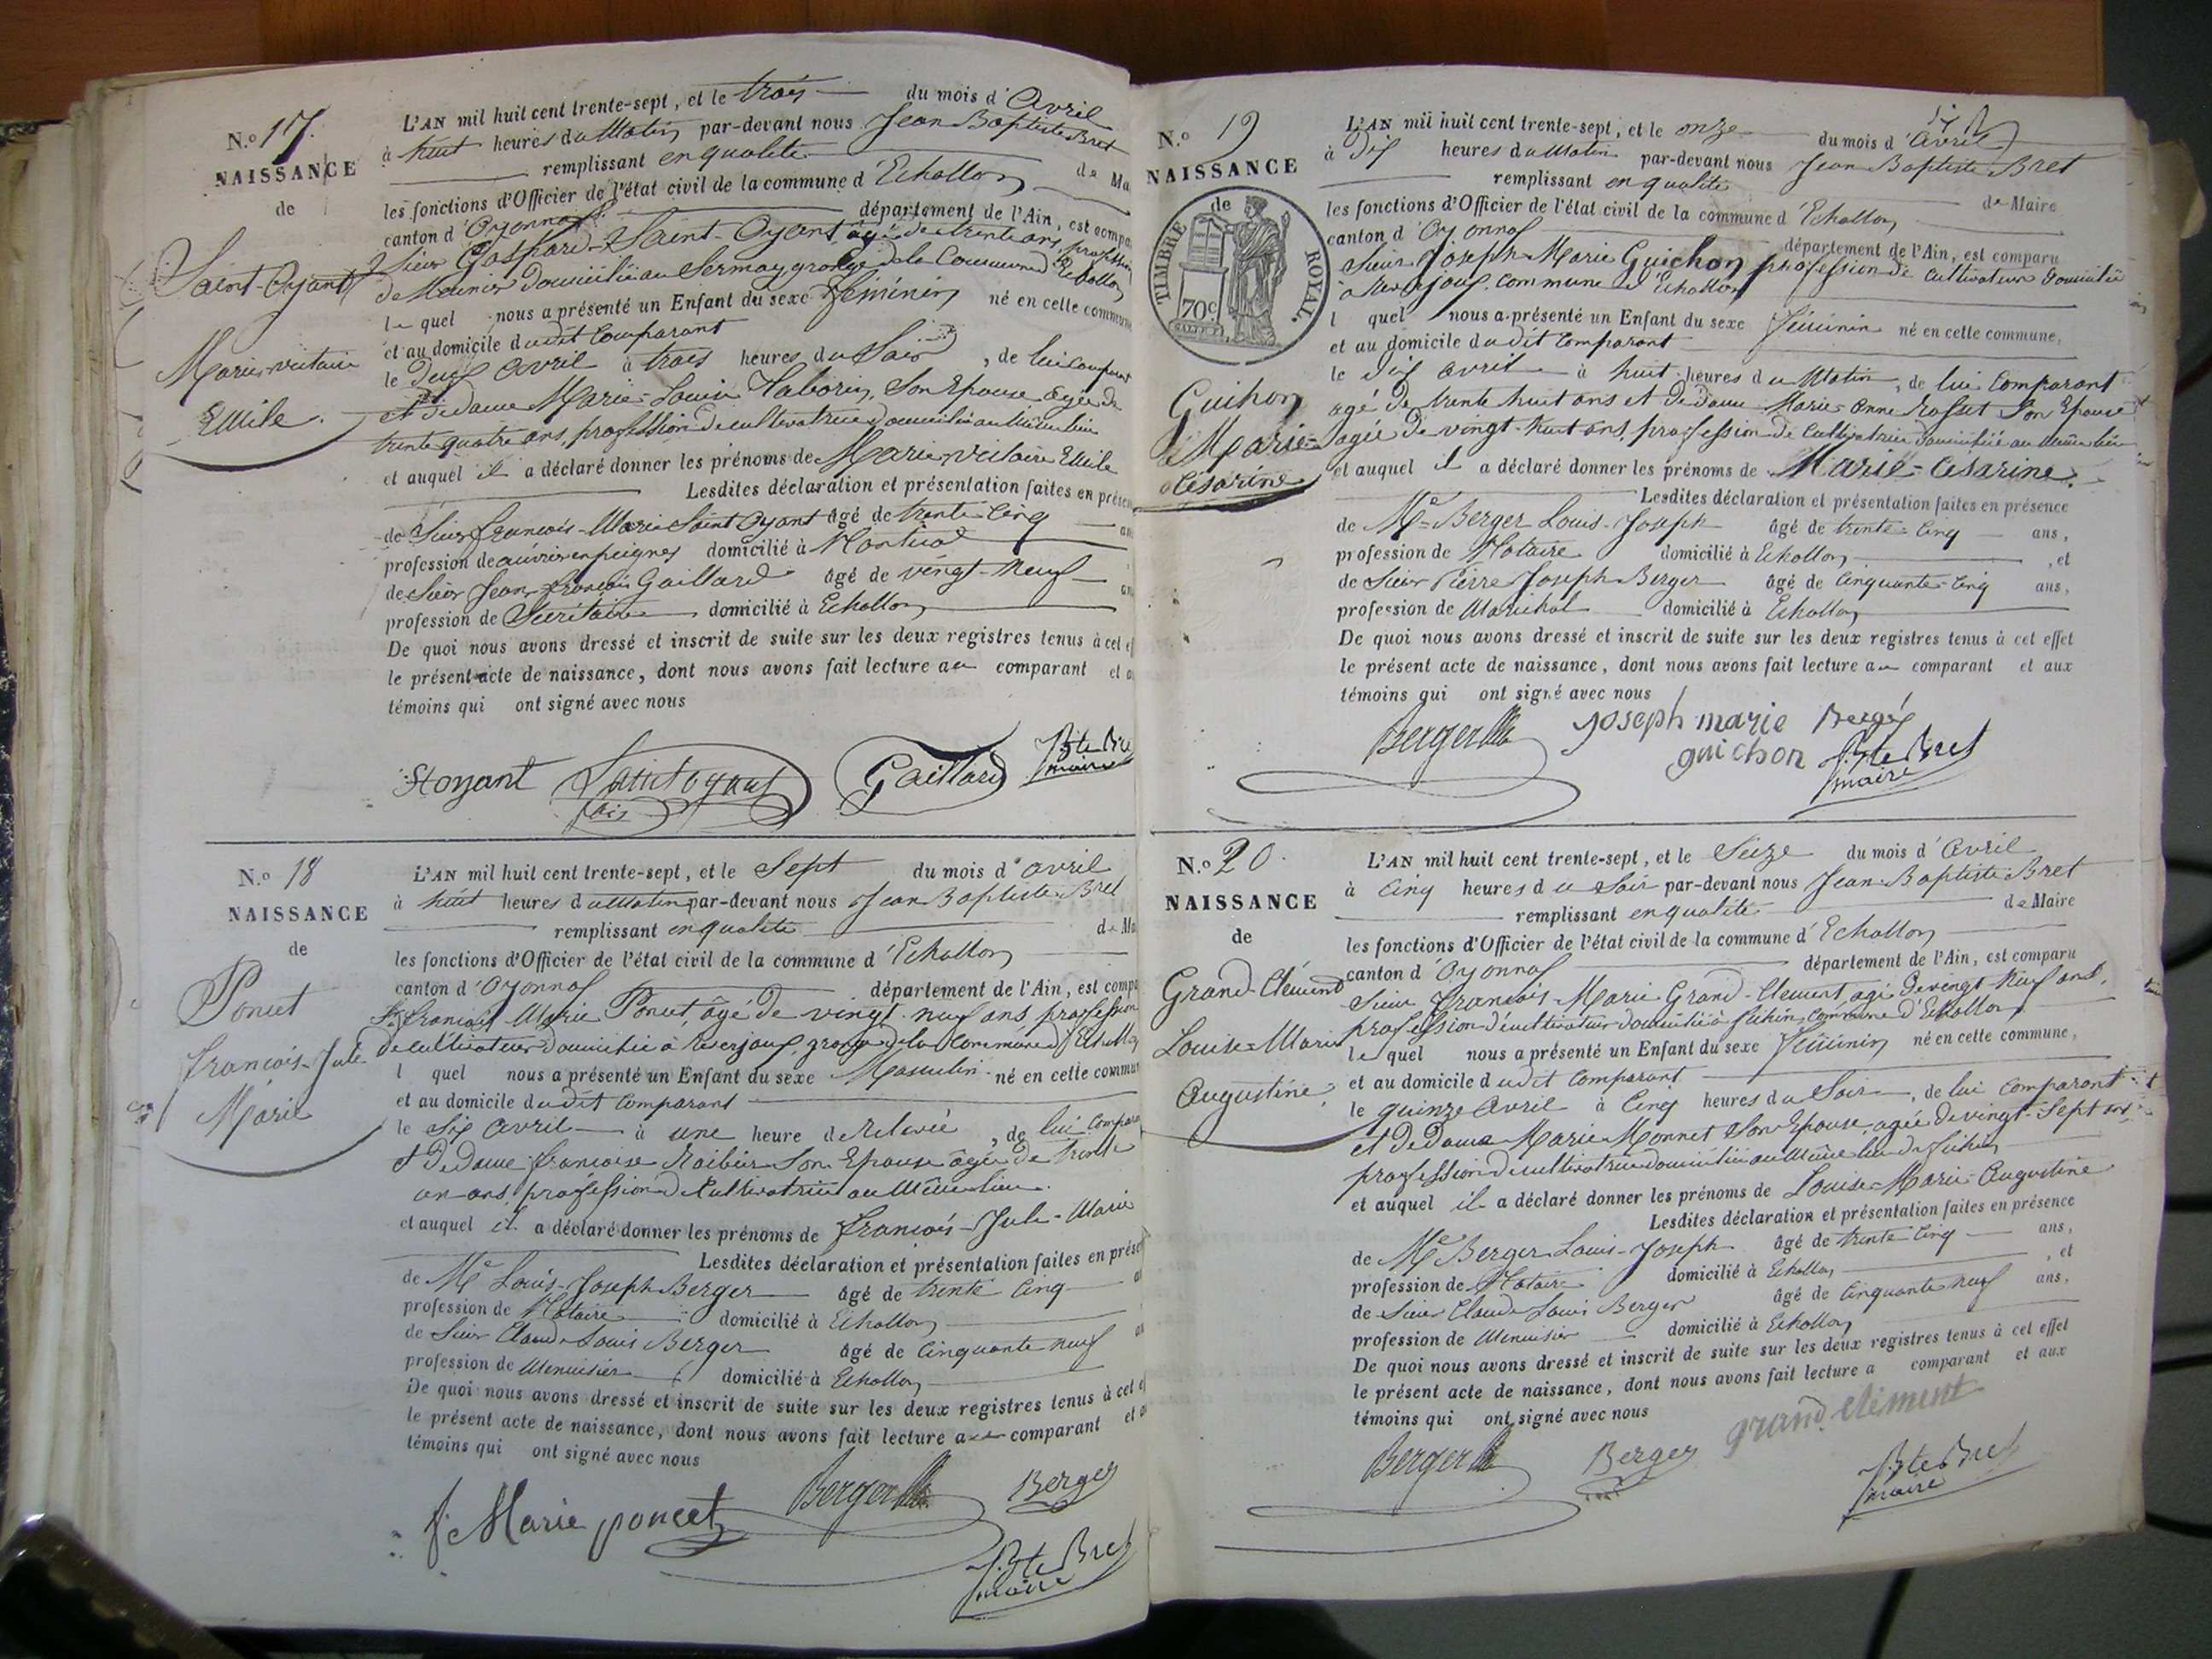 N.o 17.
NAISSANCE
de
Saint-Oyant
Marie
Emile.
L'AN mil huit cent trente-sept, et le trois du mois d'Avril
à huit heures du Matin par-devant nous Jean Baptiste Bret
remplissant en qualité de Ma
les fonctions d'Officier de l'état civil de la commune d'Echallon
canton d'Oyonnax département de l'Ain, est compa
Sieur Gaspard Saint-Oyant, âgé de trente ans, profession
de Meunier domicilié au Sermay grange de la Commune d'Echallon
le quel nous a présenté un Enfant du sexe féminin né en cette commune
et au domicile dudit Comparant
le deux Avril à trois heures du Soir, de lui comparant
et de dame Marie Louise Son Epouse âgée de
trente quatre ans, profession de cultivatrice domiciliée au même lieu
et auquel il a déclaré donner les prénoms de Marie Emile
Lesdites déclaration et présentation faites en présen
de Sieur francois-Marie Saint Oyant âgé de trente Cinq an
profession de ouvrier en peignes domicilié à
de Sieur Jean francois Gaillard âgé de vingt-Neuf an
profession de Secrétaire domicilié à Echallon
De quoi nous avons dressé et inscrit de suite sur les deux registres tenus à cet ef
le présent acte de naissance, dont nous avons fait lecture au comparant et a
témoins qui ont signé avec nous
St oyant Saintoyant Gaillard J. Bte Bre
fois maire
N.o 18
NAISSANCE
de
Poncet
francois-Jule
Marie
L'AN mil huit cent trente-sept, et le Sept du mois d'avril
à huit heures du Matin par-devant nous Jean Baptiste Bret
remplissant en qualité de Ma
les fonctions d'Officier de l'état civil de la commune d'Echallon
canton d'Oyonnax département de l'Ain, est compa
Sr francois Marie Poncet, âgé de vingt-neuf ans profession
de cultivateur domicilié à grange de la Commune d'Echallon
l quel nous a présenté un Enfant du sexe Masculin né en cette commun
et au domicile dudit Comparant
le Six Avril à une heure de Relevée, de lui Compara
et de dame francoise Son Epouse âgée de trente
un ans profession de Cultivatrice au Même lieu.
et auquel il a déclaré donner les prénoms de francois-Jule-Marie
Lesdites déclaration et présentation faites en prése
de Me Louis-Joseph Berger âgé de trente Cinq a
profession de Notaire domicilié à Echallon
de Sieur Claude Louis Berger âgé de Cinquante neuf an
profession de Menuisier domicilié à Echallon
De quoi nous avons dressé et inscrit de suite sur les deux registres tenus à cet e
le présent acte de naissance, dont nous avons fait lecture au comparant et a
témoins qui ont signé avec nous
f. Marie poncet Berger Berger
J. Bte Bret
maire
N.o 19
NAISSANCE
de
TIMBRE ROYAL.
70c
Guichon
Marie=
Césarine
L'AN mil huit cent trente-sept, et le onze du mois d'Avril
à Dix heures du Matin par-devant nous Jean Baptiste Bret
remplissant en qualité de Maire
les fonctions d'Officier de l'état civil de la commune d'Echallon
canton d'Oyonnax département de l'Ain, est comparu
Sieur Joseph-Marie Guichon profession de Cultivateur domicilié
à commune d'Echallon
l quel nous a présenté un Enfant du sexe féminin né en cette commune,
et au domicile dudit Comparant
le dix avril à huit heures du Matin, de lui Comparant
agé de trente huit ans et de dame Marie-Anne Son Epouse
agée de vingt-huit ans, profession de Cultivatrice domiciliée au même lieu
et auquel il a déclaré donner les prénoms de Marie-Césarine.
Lesdites déclaration et présentation faites en présence
de Me Berger Louis-Joseph âgé de trente-Cinq ans,
profession de Notaire domicilié à Echallon, et
de Sieur Pierre Joseph Berger âgé de Cinquante-Cinq ans,
profession de Maréchal domicilié à Echallon
De quoi nous avons dressé et inscrit de suite sur les deux registres tenus à cet effet
le présent acte de naissance, dont nous avons fait lecture au comparant et aux
témoins qui ont signé avec nous
Berger joseph marie Berger
guichon J. Bte Bret
maire
N.o 20.
NAISSANCE
de
Grand-Clément
Louise-Marie
Augustine.
L'AN mil huit cent trente-sept, et le Seize du mois d'Avril
à Cinq heures du Soir par-devant nous Jean-Baptiste Bret
remplissant en qualité de Maire
les fonctions d'Officier de l'état civil de la commune d'Echallon
canton d'Oyonnax département de l'Ain, est comparu
Sieur francois-Marie Grand-Clement, agé de vingt Neuf ans,
profession de cultivateur domicilié à commune d'Echallon
le quel nous a présenté un Enfant du sexe féminin né en cette commune,
et au domicile dudit Comparant
le quinze Avril à Cinq heures du Soir, de lui Comparant
et de dame Marie Monnet Son Epouse, agée de vingt-Sept ans
profession de cultivatrice domiciliée au Même lieu de
et auquel il a déclaré donner les prénoms de Louise-Marie-Augustine
Lesdites déclaration et présentation faites en présence
de Me Berger Louis-Joseph âgé de trente Cinq ans,
profession de Notaire domicilié à Echallon, et
de Sieur Claude Louis Berger âgé de Cinquante neuf ans,
profession de Menuisier domicilié à Echallon
De quoi nous avons dressé et inscrit de suite sur les deux registres tenus à cet effet
le présent acte de naissance, dont nous avons fait lecture a comparant et aux
témoins qui ont signé avec nous
grand clément
Berger Berger J. Bte Bret
maire